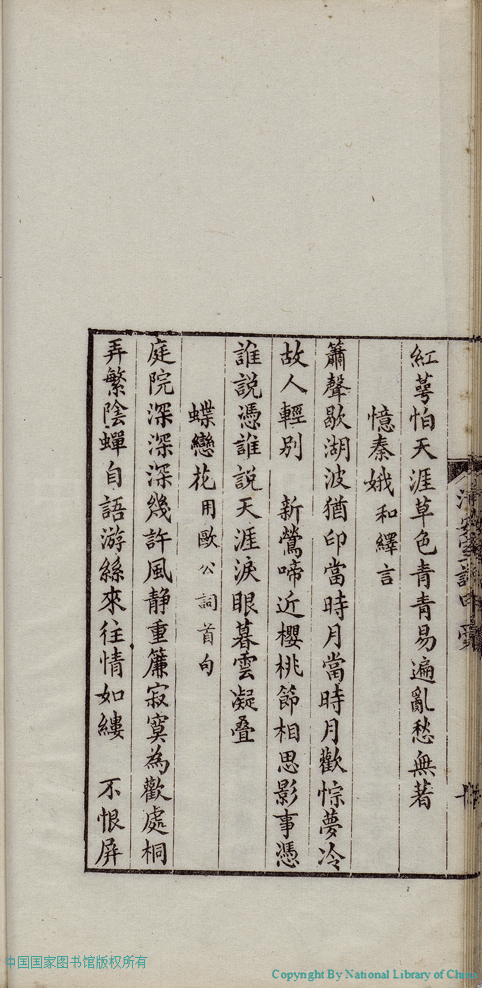 紅蕚怕天涯草色青青易遍亂愁無著
憶秦娥和繹言
簫聲歇湖波猶印當時月當時月歡悰夢冷
故人輕別　新鶯啼近櫻桃節相思影事憑
誰說憑誰說天涯淚眼暮雲凝叠
蝶戀花用歐公詞首句
庭院深深深幾許風静重簾寂寞為歡處桐
弄繁陰蟬自語游絲來往情如縷　不恨屏
中国国家图书馆版权所有
Copyright By National Library of China